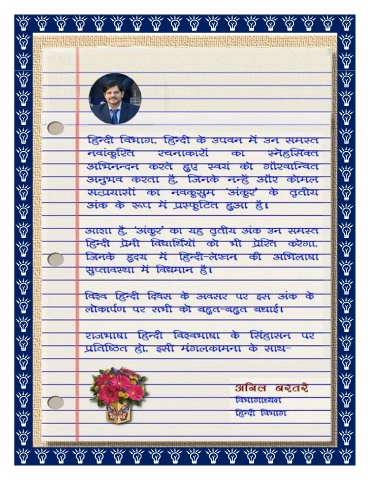 हिन्दी विभाग, हिन्दी के उपवन में उन समस्त
नवांकुरित रचनाकारों का स्नेहसिक्त
अभिनन्दन करते हुए स्वयं को गौरवान्वित
अनुभव करता है, जिनके नन्हें और कोमल
सत्प्रयासों का नवकुसुम 'अंकुर' के तृतीय
अंक के रूप में प्रस्फुटित हुआ है।
आशा है, 'अंकुर' का यह तृतीय अंक उन समस्त
हिन्दी प्रेमी विद्यार्थियों को भी प्रेरित करेगा,
जिनके हृदय में हिन्दी-लेखन की अभिलाषा
सुप्तावस्था में विद्यमान है।
विश्व हिन्दी दिवस के अवसर पर इस अंक के
लोकार्पण पर सभी को बहुत-बहुत बधाई।
राजभाषा हिन्दी विश्वभाषा के सिंहासन पर
प्रतिष्ठित हो, इसी मंगलकामना के साथ-
अनिल बरतरे
विभागाध्यक्ष
हिन्दी विभाग